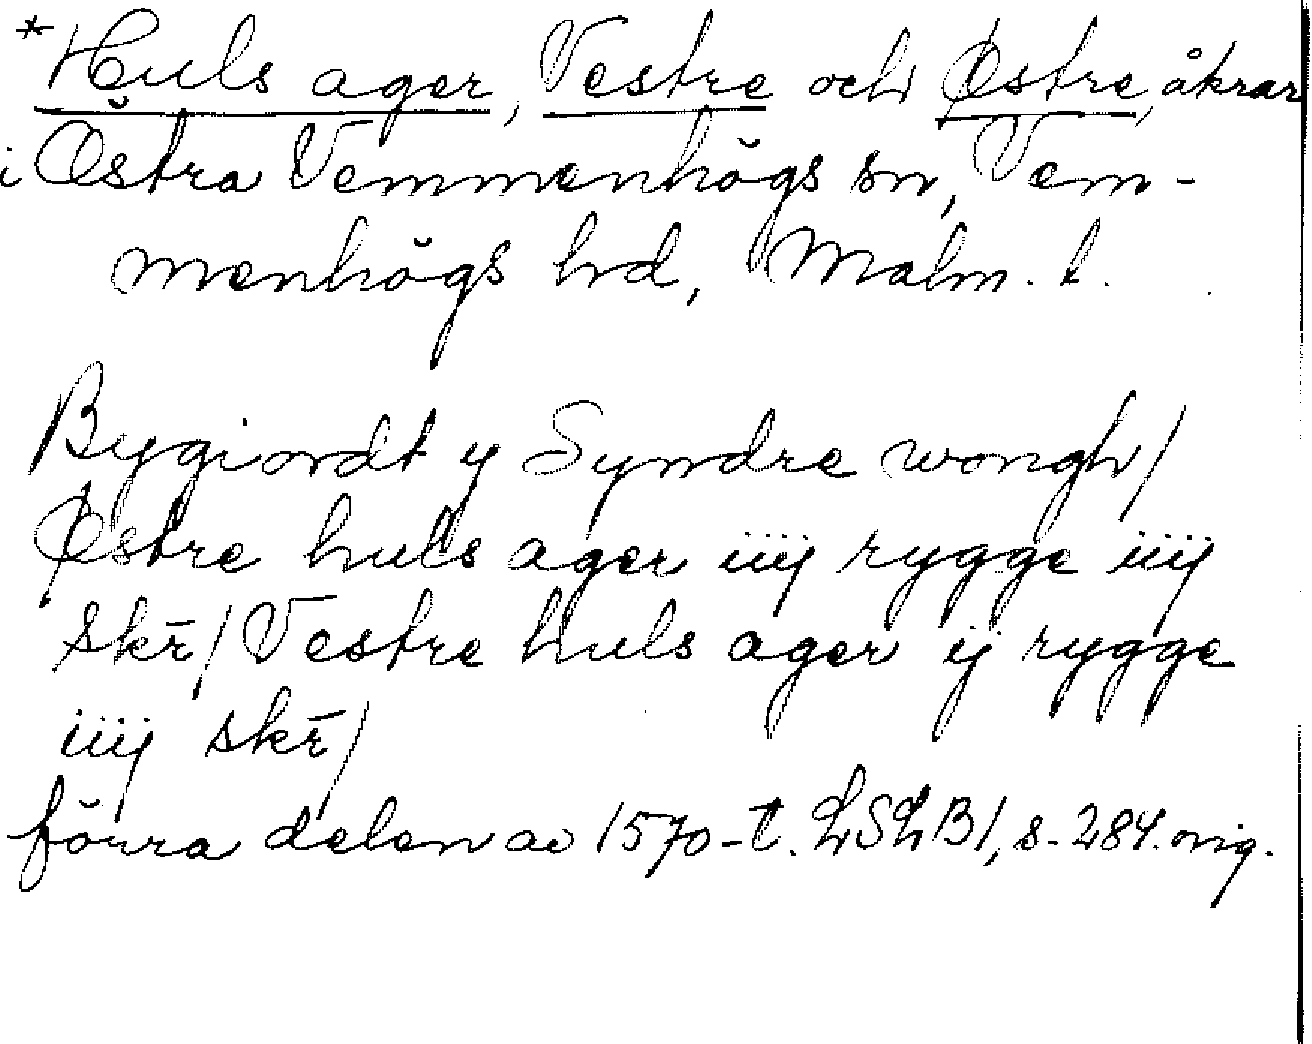 *Huls ager, Vestre och Østre, åkrar
i Östra Vemmenhögs sn, Vem-
menhögs hd, Malm. l.
Bygiordt y Syndre wongh/
Østre huls ager iiij rygge iiij
skr̄/ Vestre huls ager ij rygge
iiij skr̄/
förra delen av 1570-t. LSLB1, s. 284. orig.